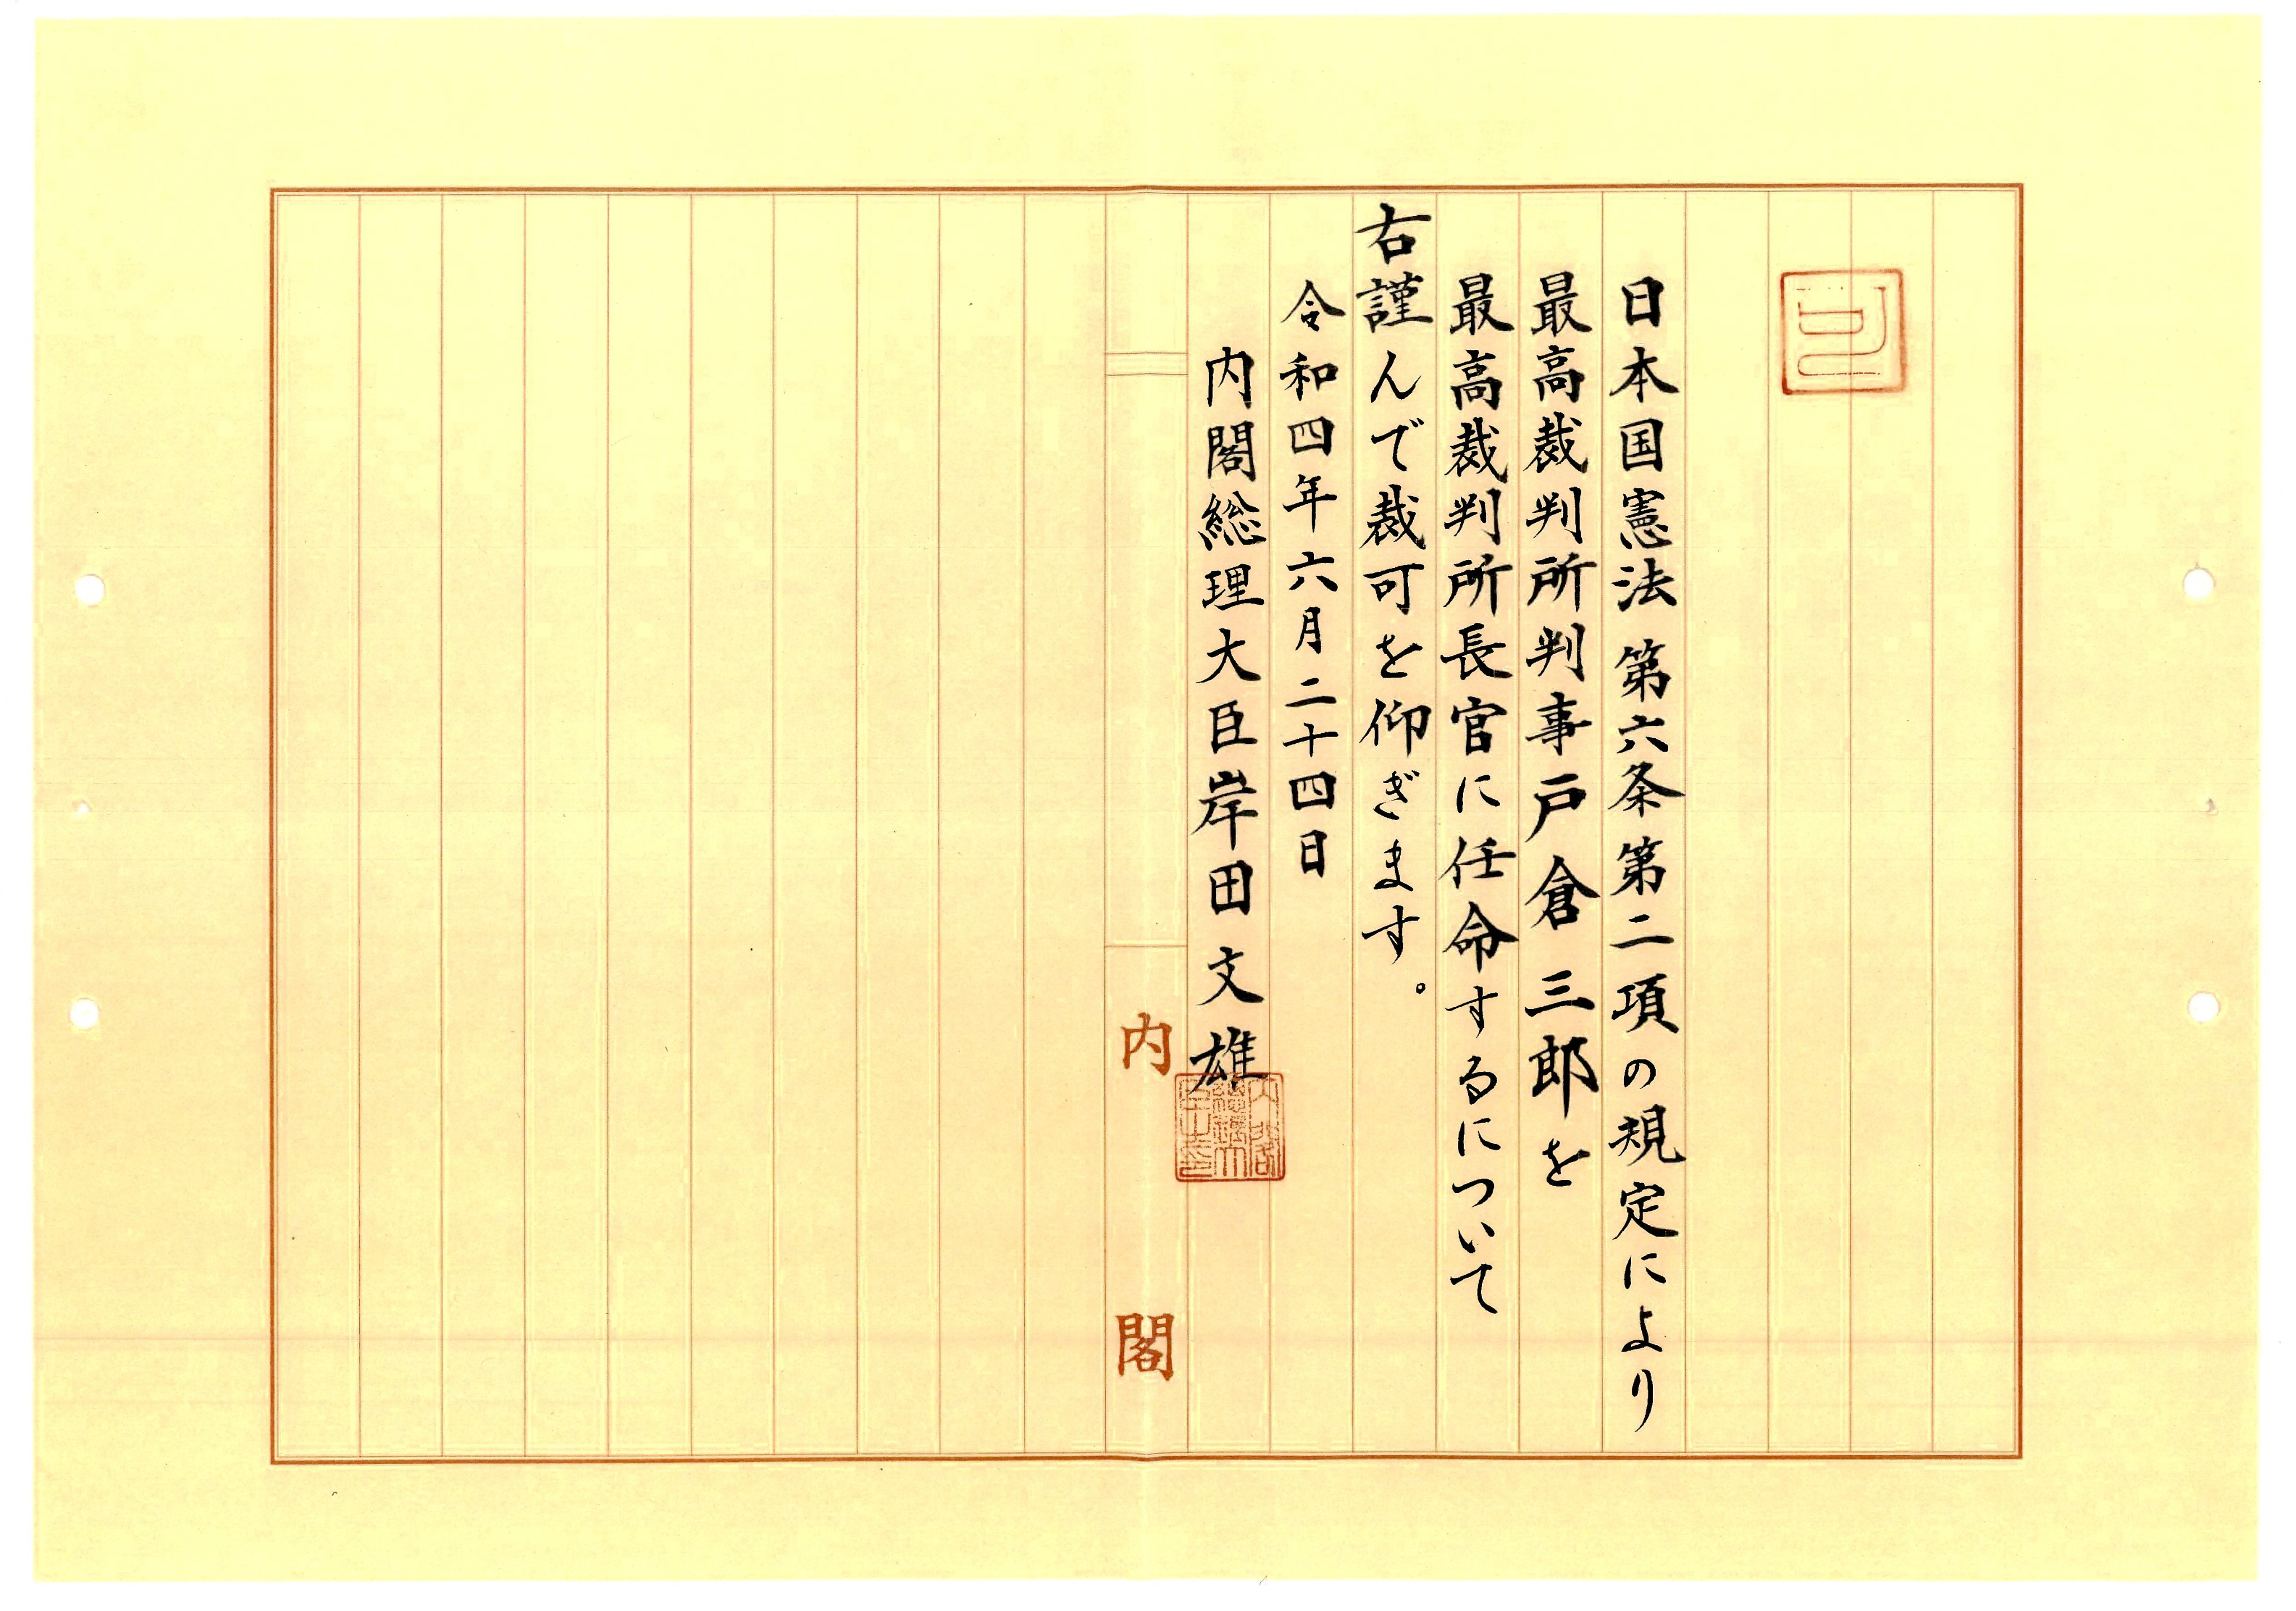 日本国憲法第六条第二項の規定により
最高裁判所判事戸倉三郎を
最高裁判所長官に任命するについて
右謹んで裁可を仰ぎます。
令和四年六月二十四日
内閣総理大臣岸田文雄
内閣